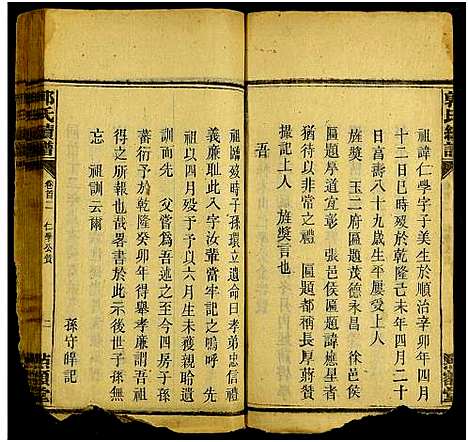 祖諱仁學字子美生於順治辛卯年四月
十二日巳時歿於乾隆己未年四月二十
日享壽八十九歲生平屢受上
旌獎 玉二府區題茂德永昌 徐邑侯
區題學道宜彰 張邑侯區題諱應星者
猶待以非常之禮 區題都稱長厚蔣贊
撮記上人 旌獎言也
吾
祖臨歿時子孫環立遺命曰孝弟忠信禮
義廉恥此八字汝輩當牢記之嗚呼 先
祖以四月歿予以六月生未獲親聆遺
訓而先 父嘗爲吾述之至今四房子孫
蕃衍予於乾隆癸卯年得舉孝廉謂吾祖
之所報也哉畧書於此示後世子孫無
忘 祖訓云爾
孫守皞記
郭氏續譜
卷首二 仁學公贊
二